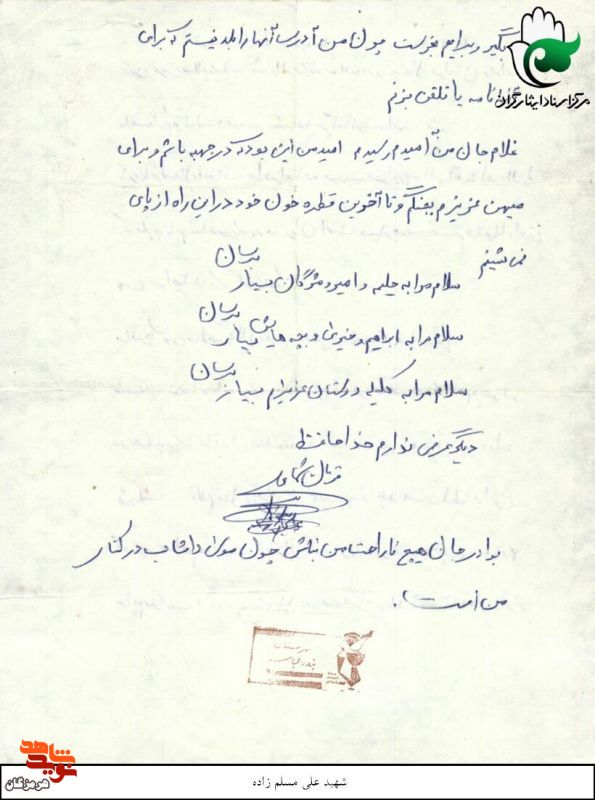 بگیر و برایم بفرست چون من آدرس آنها را بلد نیستم که برای
نامه یا تلفن بزنم
مرکز اسناد ایثارگران
غلام جان من به امیدم رسیدم امید من این بود که در جبهه باشم و برای
میهن عزیزم بجنگم و تا آخرین قطره خون خود در این راه از پای
نمی شینم
سلام مرا به حلیمه و امیر و مژگان بسیار برسان
سلام مرا به ابراهیم و بچه هایش بسیار برسان
سلام مرا به کلیه دوستان عزیزم بسیار برسان
دیگر عرضی ندارم خداحافظ
قربان شما علی
برادر جان هیچ ناراحت من نباش چون در کنار
من است.
بندرعباس
نوید شاهد
هرمزگان
شهید علی مسلم زاده